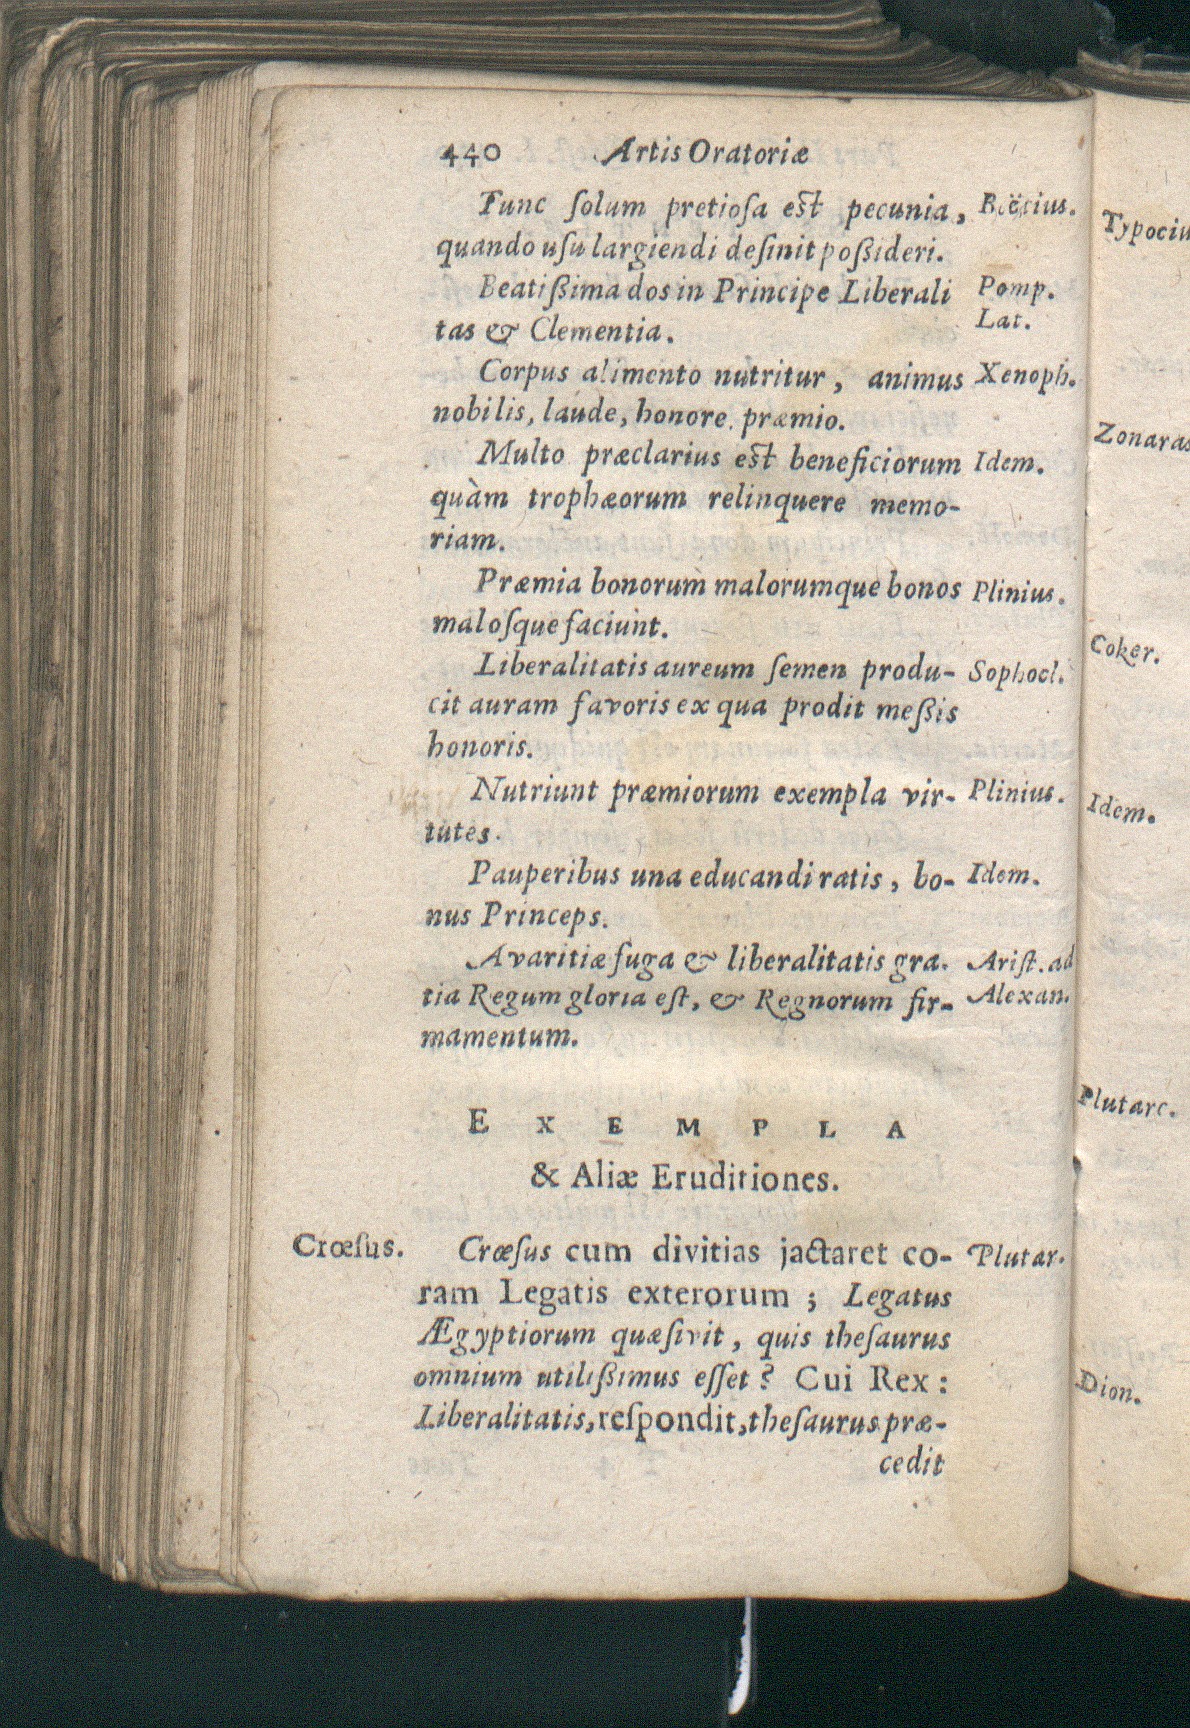 440 Artis Oratoriæ
Tunc ſolum pretioſa est pecunia, Boëtius.
quando uſu largiendi deſinit poßideri.
Beatißima dos in Principe Liberali Pomp.
tas & Clementia. Lat.
Corpus alimento nutritur, animus Xenoph.
nobilis, laude, honore, præmio.
Multo præclarius est beneficiorum Idem.
quàm trophæorum relinquere memo-
riam.
Præmia bonorum malorumque bonos Plinius.
maloſque faciunt.
Liberalitatis aureum ſemen produ- Sophocl.
cit auram favoris ex qua prodit meßis
honoris.
Nutriunt præmiorum exempla vir- Plinius.
tutes.
Pauperibus una educandi ratis, bo- Idem.
nus Princeps.
Avaritiæ fuga & liberalitatis gra- Ariſt. ad
tia Regum gloria eſt, & Regnorum fir- Alexan.
mamentum.
EXEMPLA
& Aliæ Eruditiones.
Crœſus. Crœſus cum divitias jactaret co- Plutar.
ram Legatis exterorum; Legatus
Ægyptiorum quæſivit, quis theſaurus
omnium utilißimus eſſet? Cui Rex:
Liberalitatis, reſpondit, theſaurus præ-
cedit
Zonaras
Coker.
Idem.
Plutarc.
Dion.